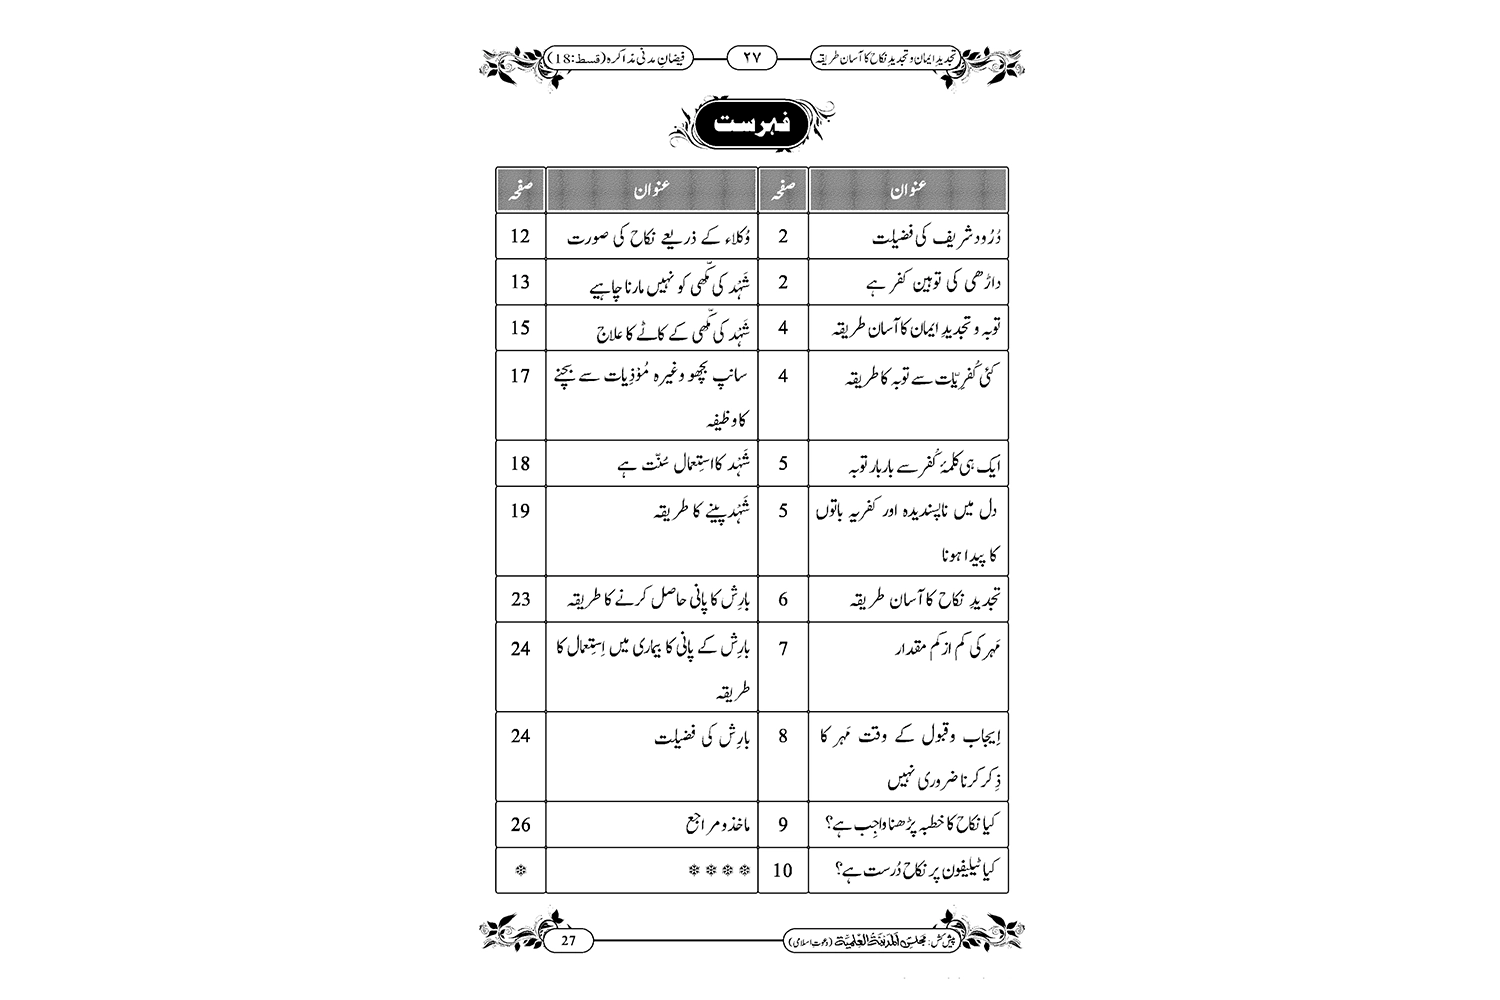 تجدیدِ ایمان و تجدیدِ نکاح کا آسان طریقہ ۲۷ فیضانِ مدنی مذاکرہ (قسط:18)
فہرست
عنوان صفحہ عنوان صفحہ
دُرُود شریف کی فضیلت 2 وُکلاء کے ذریعے نکاح کی صورت 12
داڑھی کی توہین کفر ہے 2 شَہْد کی مکّھی کو نہیں مارنا چاہیے 13
توبہ و تجدیدِ ایمان کا آسان طریقہ 4 شَہْد کی مکّھی کے کاٹے کا علاج 15
کئی کُفرِیّات سے توبہ کا طریقہ 4 سانپ بچھو وغیرہ مُؤذِیات سے بچنے 17
کا وظیفہ
ایک ہی کلمۂ کُفر سے بار بار توبہ 5 شَہْد کا استِعمال سُنّت ہے 18
دل میں ناپسندیدہ اور کفریہ باتوں 5 شَہْد پینے کا طریقہ 19
کا پیدا ہونا
تجدیدِ نکاح کا آسان طریقہ 6 بارِش کا پانی حاصل کرنے کا طریقہ 23
مَہر کی کم از کم مقدار 7 بارِش کے پانی کا بیماری میں اِستِعمال کا 24
طریقہ
اِیجاب و قبول کے وقت مَہر کا 8 بارِش کی فضیلت 24
ذِکر کرنا ضروری نہیں
کیا نکاح کا خطبہ پڑھنا واجِب ہے؟ 9 ماخذ و مراجع 26
کیا ٹیلیفون پر نکاح دُرست ہے؟ 10 ❄ ❄ ❄ ❄ ❄
پیش کش: مجلس المدینۃ العلمیۃ (دعوتِ اسلامی) 27